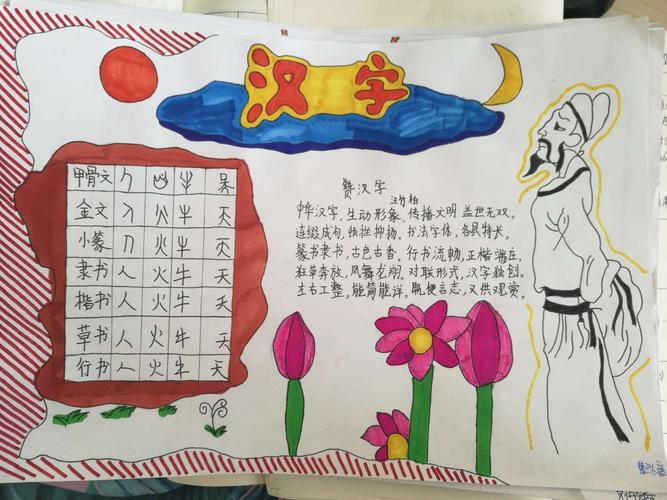 汉字
甲骨文 人 火 牛 天
金文 人 火 牛 天
小篆 人 火 牛 天
隶书 人 火 牛 天
楷书 人 火 牛 天
草书 人 火 牛 天
行书 人 火 牛 天
赞汉字
汪竹柏
中华汉字，生动形象。传播文明，盖世无双。
连缀成句，顿挫抑扬。书法字体，各具特长。
篆书隶书，古色古香。行书流畅，正楷端庄。
狂草奔放，凤舞龙翔。对联形式，汉字独创。
左右工整，能简能详。既便言志，又供观赏。